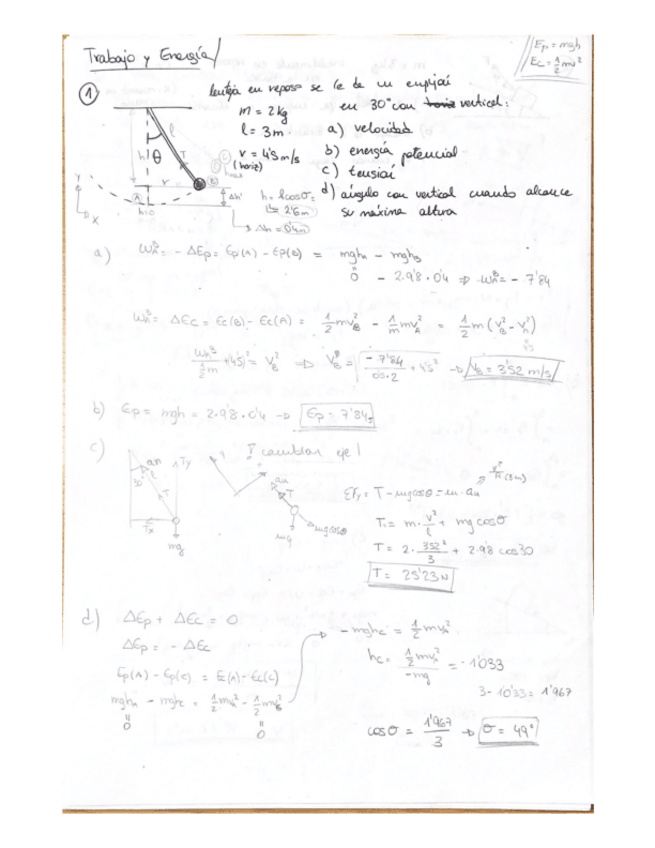 Trabajo y Energía
Ep = mgh
Ec = 1/2 mv²
① lenteja en reposo se le da un empujón
en 30° con vertical:
m = 2kg
l = 3m
v = 4'5 m/s
(horiz)
a) velocidad
b) energía potencial
c) tensión
d) ángulo con vertical cuando alcance
su máxima altura
l
θ
h
T
v
A
B
h=0
Δh
Y
X
h = l cosθ =
= 2'6m
→ Δh = 0'4m
a) W_A^B = - ΔEp = Ep(A) - Ep(B) = mgh_A - mgh_B
0 - 2·9'8·0'4 ⇒ W_A^B = - 7'84
W_A^B = ΔEc = Ec(B) - Ec(A) = 1/2 mv_B² - 1/2 mv_A² = 1/2 m (v_B² - v_A²)
4'5
W_A^B / (1/2 m) + (4'5)² = V_B² ⇒ V_B = √(-7'84 / 0'5·2 + 4'5²) → V_B = 3'52 m/s
b) Ep = mgh = 2·9'8·0'4 → Ep = 7'84
c) cambiar eje!
30°
an
T
Ty
Tx
mg
an
T
mg
mg cosθ
ΣFy = T - mg cosθ = m·an
v²/R (3m)
T = m· v²/l + mg cosθ
T = 2· 3'52²/3 + 2·9'8 cos30
T = 25'23 N
d) ΔEp + ΔEc = 0
ΔEp = - ΔEc
Ep(A) - Ep(C) = Ec(A) - Ec(C)
mgh_A - mgh_C = 1/2 mv_A² - 1/2 mv_C²
0
0
- mgh_C = 1/2 mv_A²
h_C = 1/2 mv_A² / -mg = - 1'033
3 - 1'033 = 1'967
cosθ = 1'967 / 3 → θ = 49°